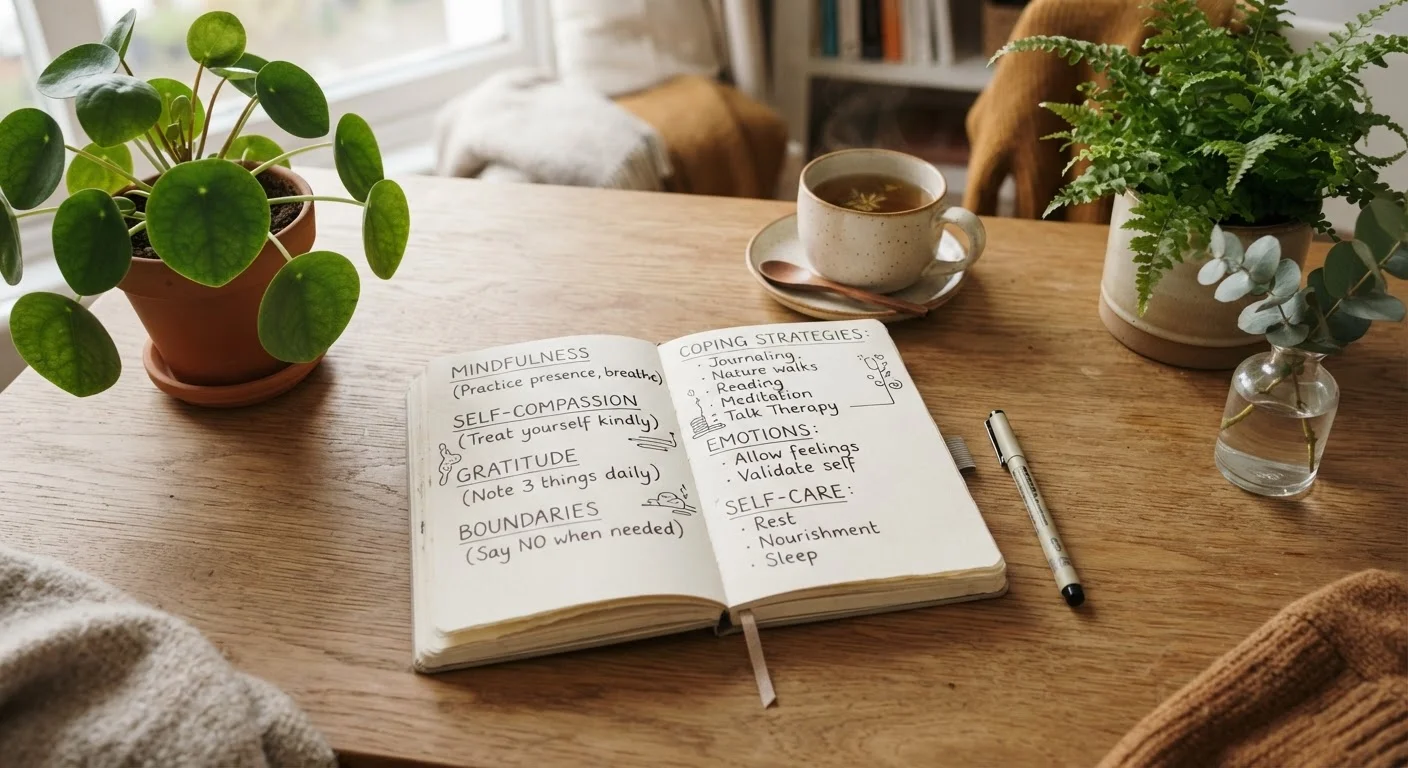 MINDFULNESS
(Practice presence, breathe)
SELF-COMPASSION
(Treat yourself kindly)
GRATITUDE
(Note 3 things daily)
BOUNDARIES
(Say NO when needed)
COPING STRATEGIES:
· Journaling
· Nature walks
· Reading
· Meditation
· Talk Therapy
EMOTIONS:
· Allow feelings
· Validate self
SELF-CARE:
· Rest
· Nourishment
· Sleep